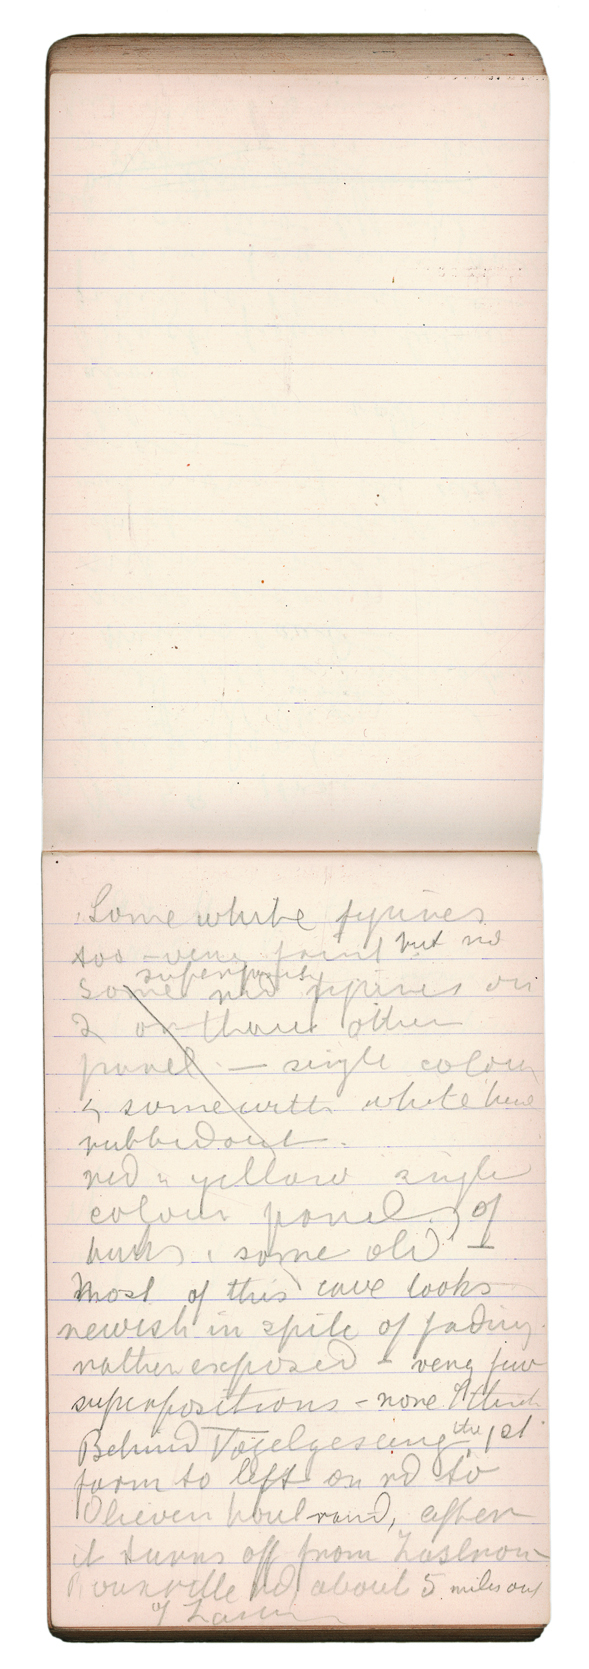 Some white figures
too - very faint but no
superposits
some red figures on
2 or three other
panel — single colour
& some with white lines
rubbed out.
red & yellow single
colour panels of
bucks, some old —
Most of this cave looks
newish in spite of fading
rather exposed - very few
superpositions - none I think
Behind Vogelgesang, the 1st
farm to left on rd to
Olieven houtrand, after
it turns off from Zastron
Rouxville rd, about 5 miles out
of Zastron